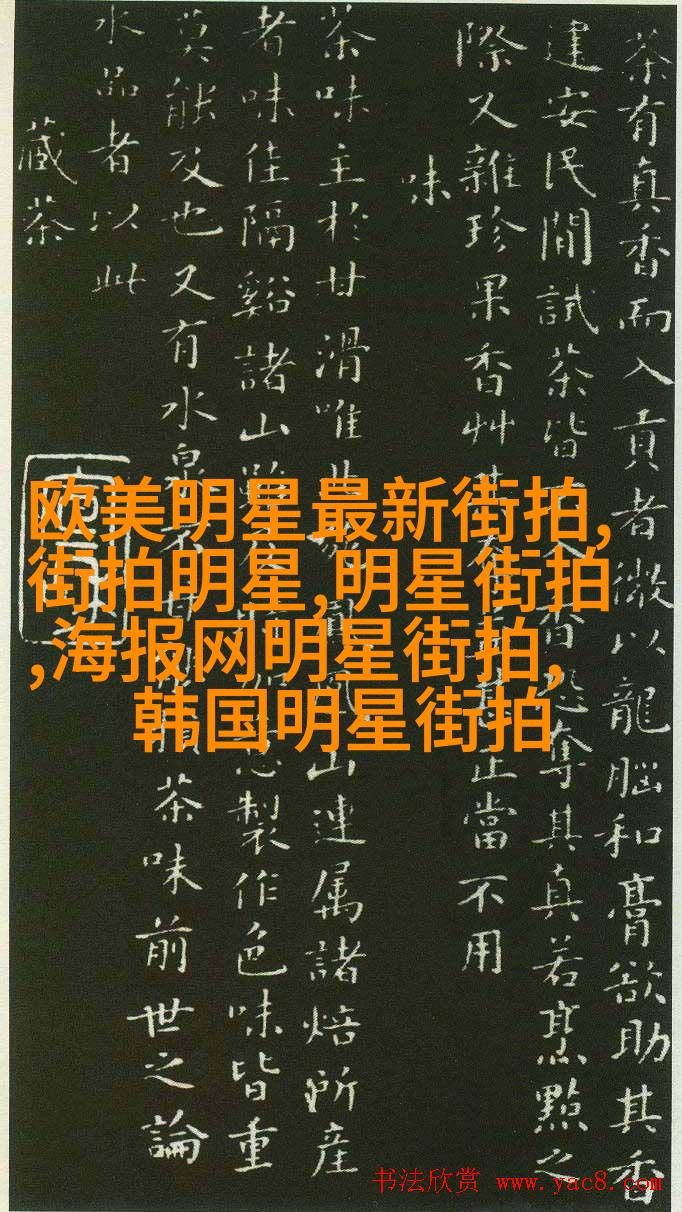 茶有真香而入貢者微以龍腦和膏欲助其香
建安民間試茶皆香恐奪其真若烹點之
際又雜珍果香艸其正當不用
味
茶味主於甘滑唯山連属諸焙所產
者味佳隔谿諸山雖意製作色味皆重
莫能及也又有水泉損茶味前世之論
水品者以此
藏茶
欧美明星最新街拍,
街拍明星,明星街拍
,海报网明星街拍,
韩国明星街拍
书法欣赏 www.yac8.com